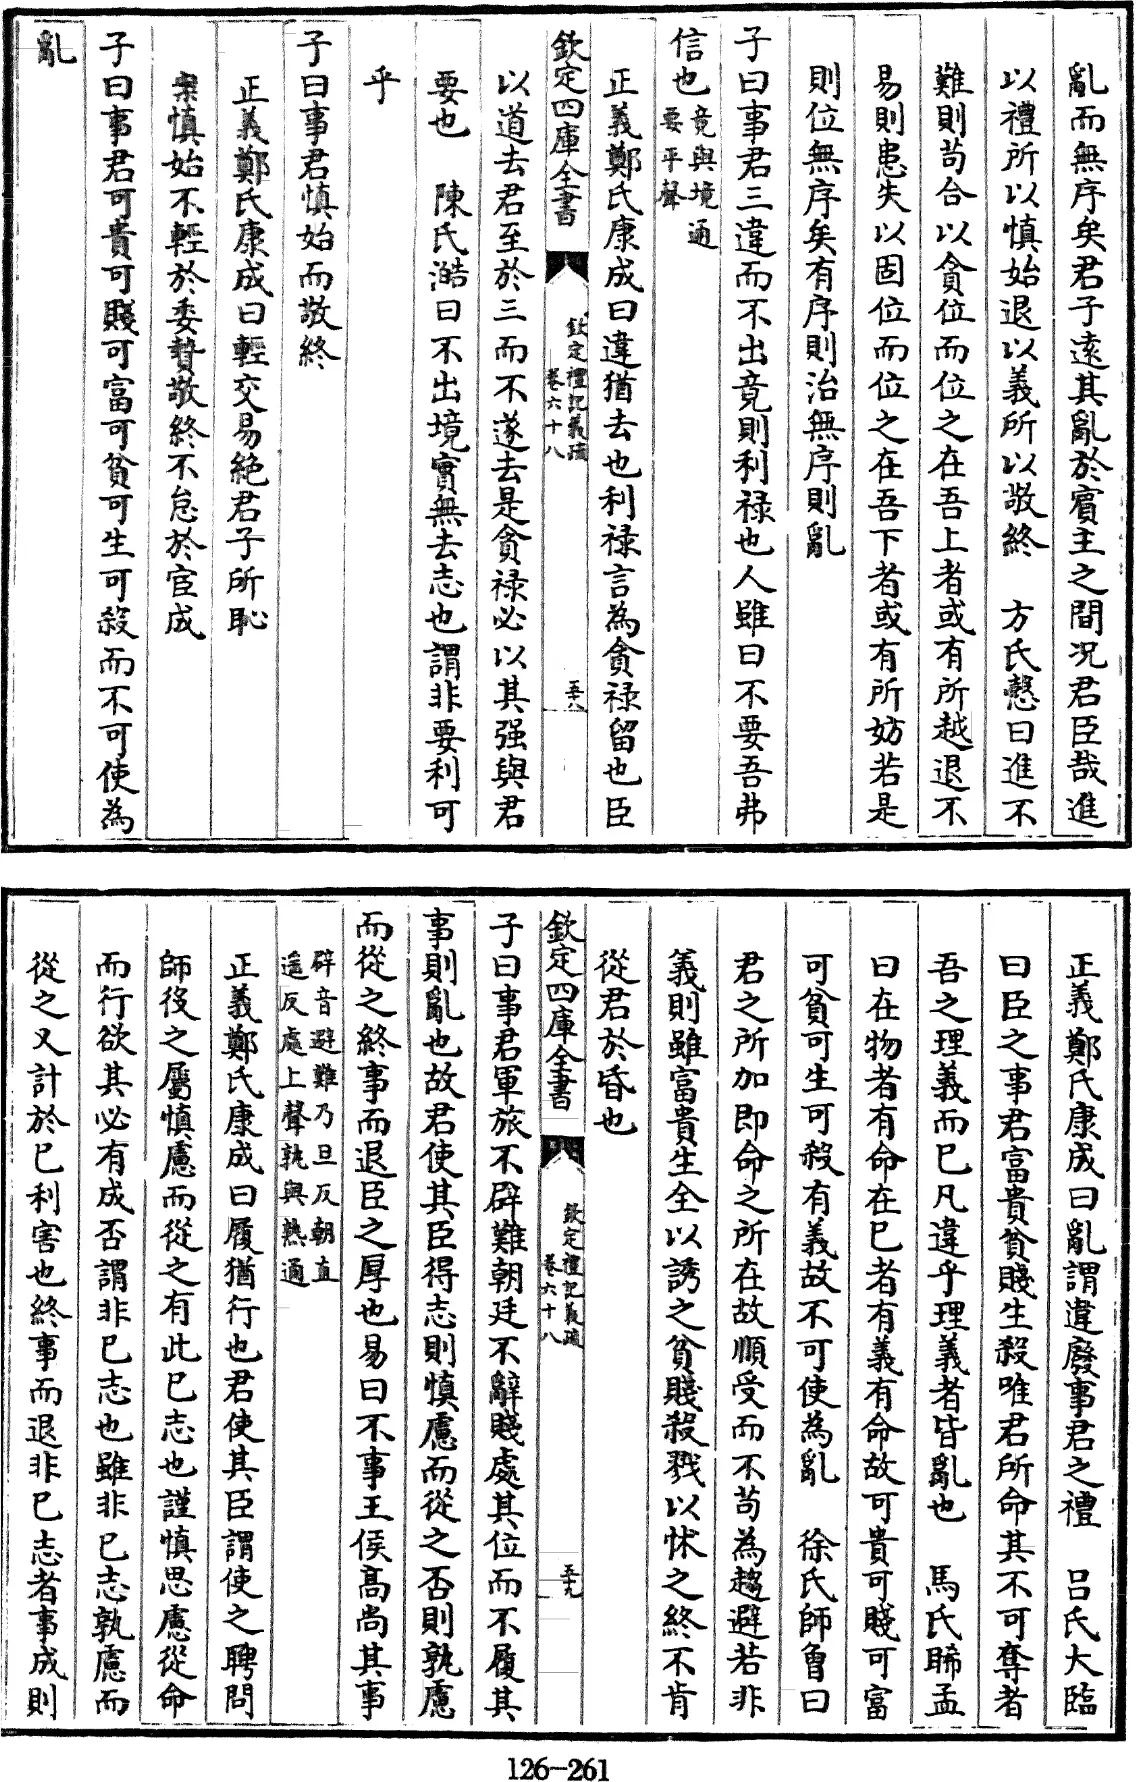 亂而無序矣君子遠其亂於賓主之間況君臣哉進
以禮所以慎始退以義所以敬終　方氏慤曰進不
難則苟合以貪位而位之在吾上者或有所越退不
易則患失以固位而位之在吾下者或有所妨若是
則位無序矣有序則治無序則亂
子曰事君三違而不出竟則利祿也人雖曰不要吾弗
信也竟與境通
要平聲
正義鄭氏康成曰違猶去也利祿言為貪祿留也臣
欽定四庫全書
欽定禮記義疏
卷六十八
五十八
以道去君至於三而不遂去是貪祿必以其强與君
要也　陳氏澔曰不出境實無去志也謂非要利可
乎
子曰事君慎始而敬終
正義鄭氏康成曰輕交易絕君子所恥
案慎始不輕於委贄敬終不怠於宦成
子曰事君可貴可賤可富可貧可生可殺而不可使為
亂
正義鄭氏康成曰亂謂違廢事君之禮　呂氏大臨
曰臣之事君富貴貧賤生殺唯君所命其不可奪者
吾之理義而已凡違乎理義者皆亂也　馬氏睎孟
曰在物者有命在已者有義有命故可貴可賤可富
可貧可生可殺有義故不可使為亂　徐氏師曾曰
君之所加即命之所在故順受而不苟為趨避若非
義則雖富貴生全以誘之貧賤殺戮以怵之終不肯
從君於昏也
欽定四庫全書
欽定禮記義疏
卷六十八
五十九
子曰事君軍旅不辟難朝廷不辭賤處其位而不履其
事則亂也故君使其臣得志則慎慮而從之否則孰慮
而從之終事而退臣之厚也易曰不事王侯高尚其事
辟音避難乃旦反朝直
遥反處上聲孰與熟通
正義鄭氏康成曰履猶行也君使其臣謂使之聘問
師役之屬慎慮而從之有此已志也謹慎思慮從命
而行欲其必有成否謂非已志也雖非已志孰慮而
從之又計於已利害也終事而退非已志者事成則
126-261